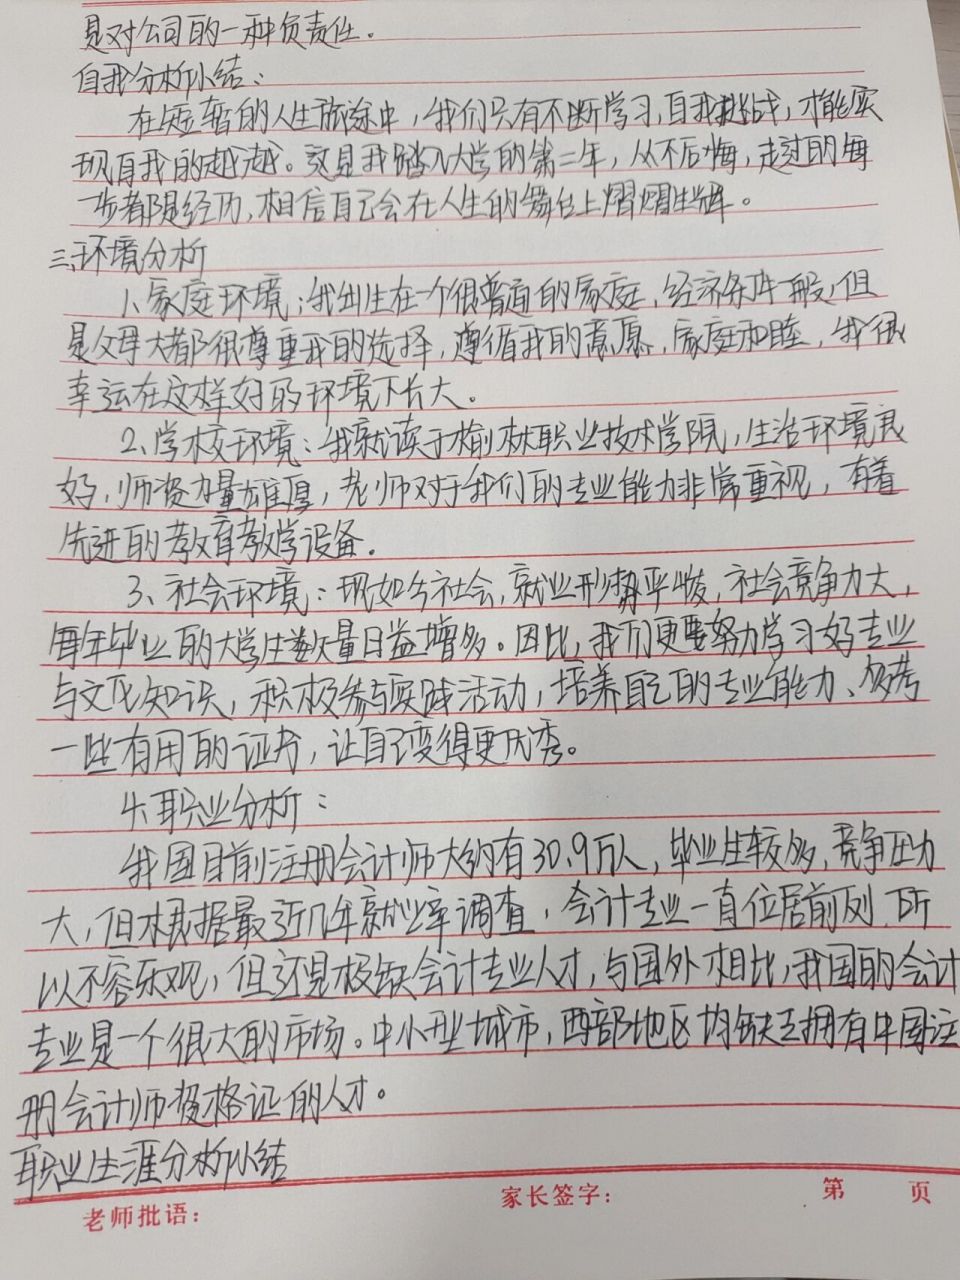 是对公司的一种负责任。
自我分析小结：
在短暂的人生旅途中，我们只有不断学习，自我挑战，才能实
现自我的超越。这是我踏入大学的第二年，从不后悔，走过的每
一步都是经历，相信自己会在人生的舞台上熠熠生辉。
三、环境分析
1、家庭环境：我出生在一个很普通的家庭，经济条件一般，但
是父母大都很尊重我的选择，遵循我的意愿，家庭和睦，我很
幸运在这样好的环境下长大。
2、学校环境：我就读于榆林职业技术学院，生活环境良
好，师资力量雄厚，老师对于我们的专业能力非常重视，有着
先进的教育教学设备。
3、社会环境：现如今社会，就业形势严峻，社会竞争力大，
每年毕业的大学生数量日益增多。因此，我们更要努力学习好专业
与文化知识，积极参与实践活动，培养自己的专业能力、多考
一些有用的证书，让自己变得更优秀。
4、职业分析：
我国目前注册会计师大约有30.9万人，毕业生较多，竞争压力
大，但根据最近几年就业率调查，会计专业一直位居前列，所
以不容乐观，但还是极缺会计专业人才，与国外相比，我国的会计
专业是一个很大的市场。中小型城市，西部地区均缺乏拥有中国注
册会计师资格证的人才。
职业生涯分析小结
老师批语： 家长签字： 第 页